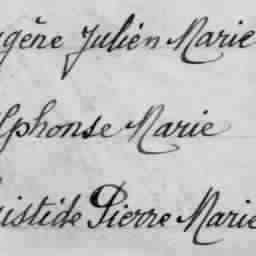 ugène Julien Marie
lphonse Marie
istide Pierre Marie